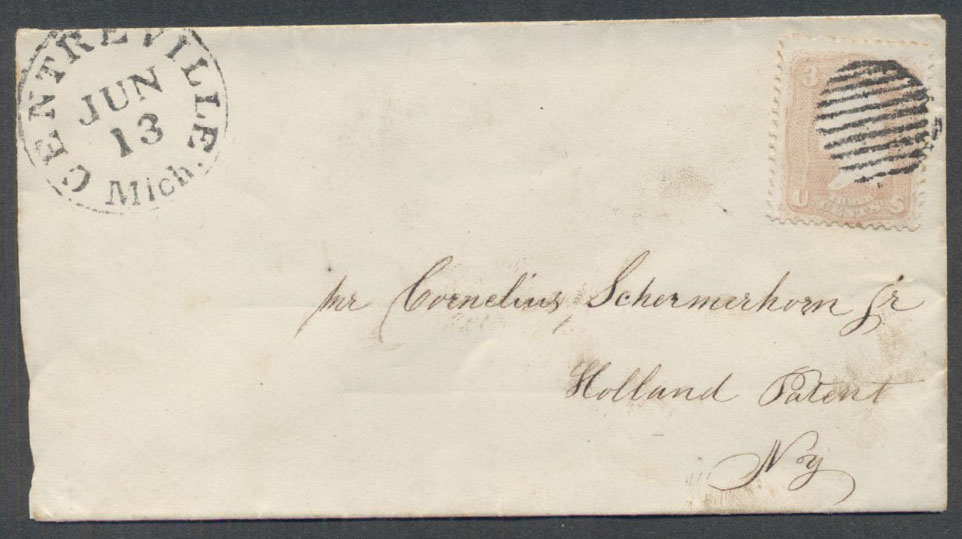 CENTREVILLE
JUN
13
Mich.
3
U S
CENTS
mr Cornelius Schermerhorn jr
Holland Patent
Ny